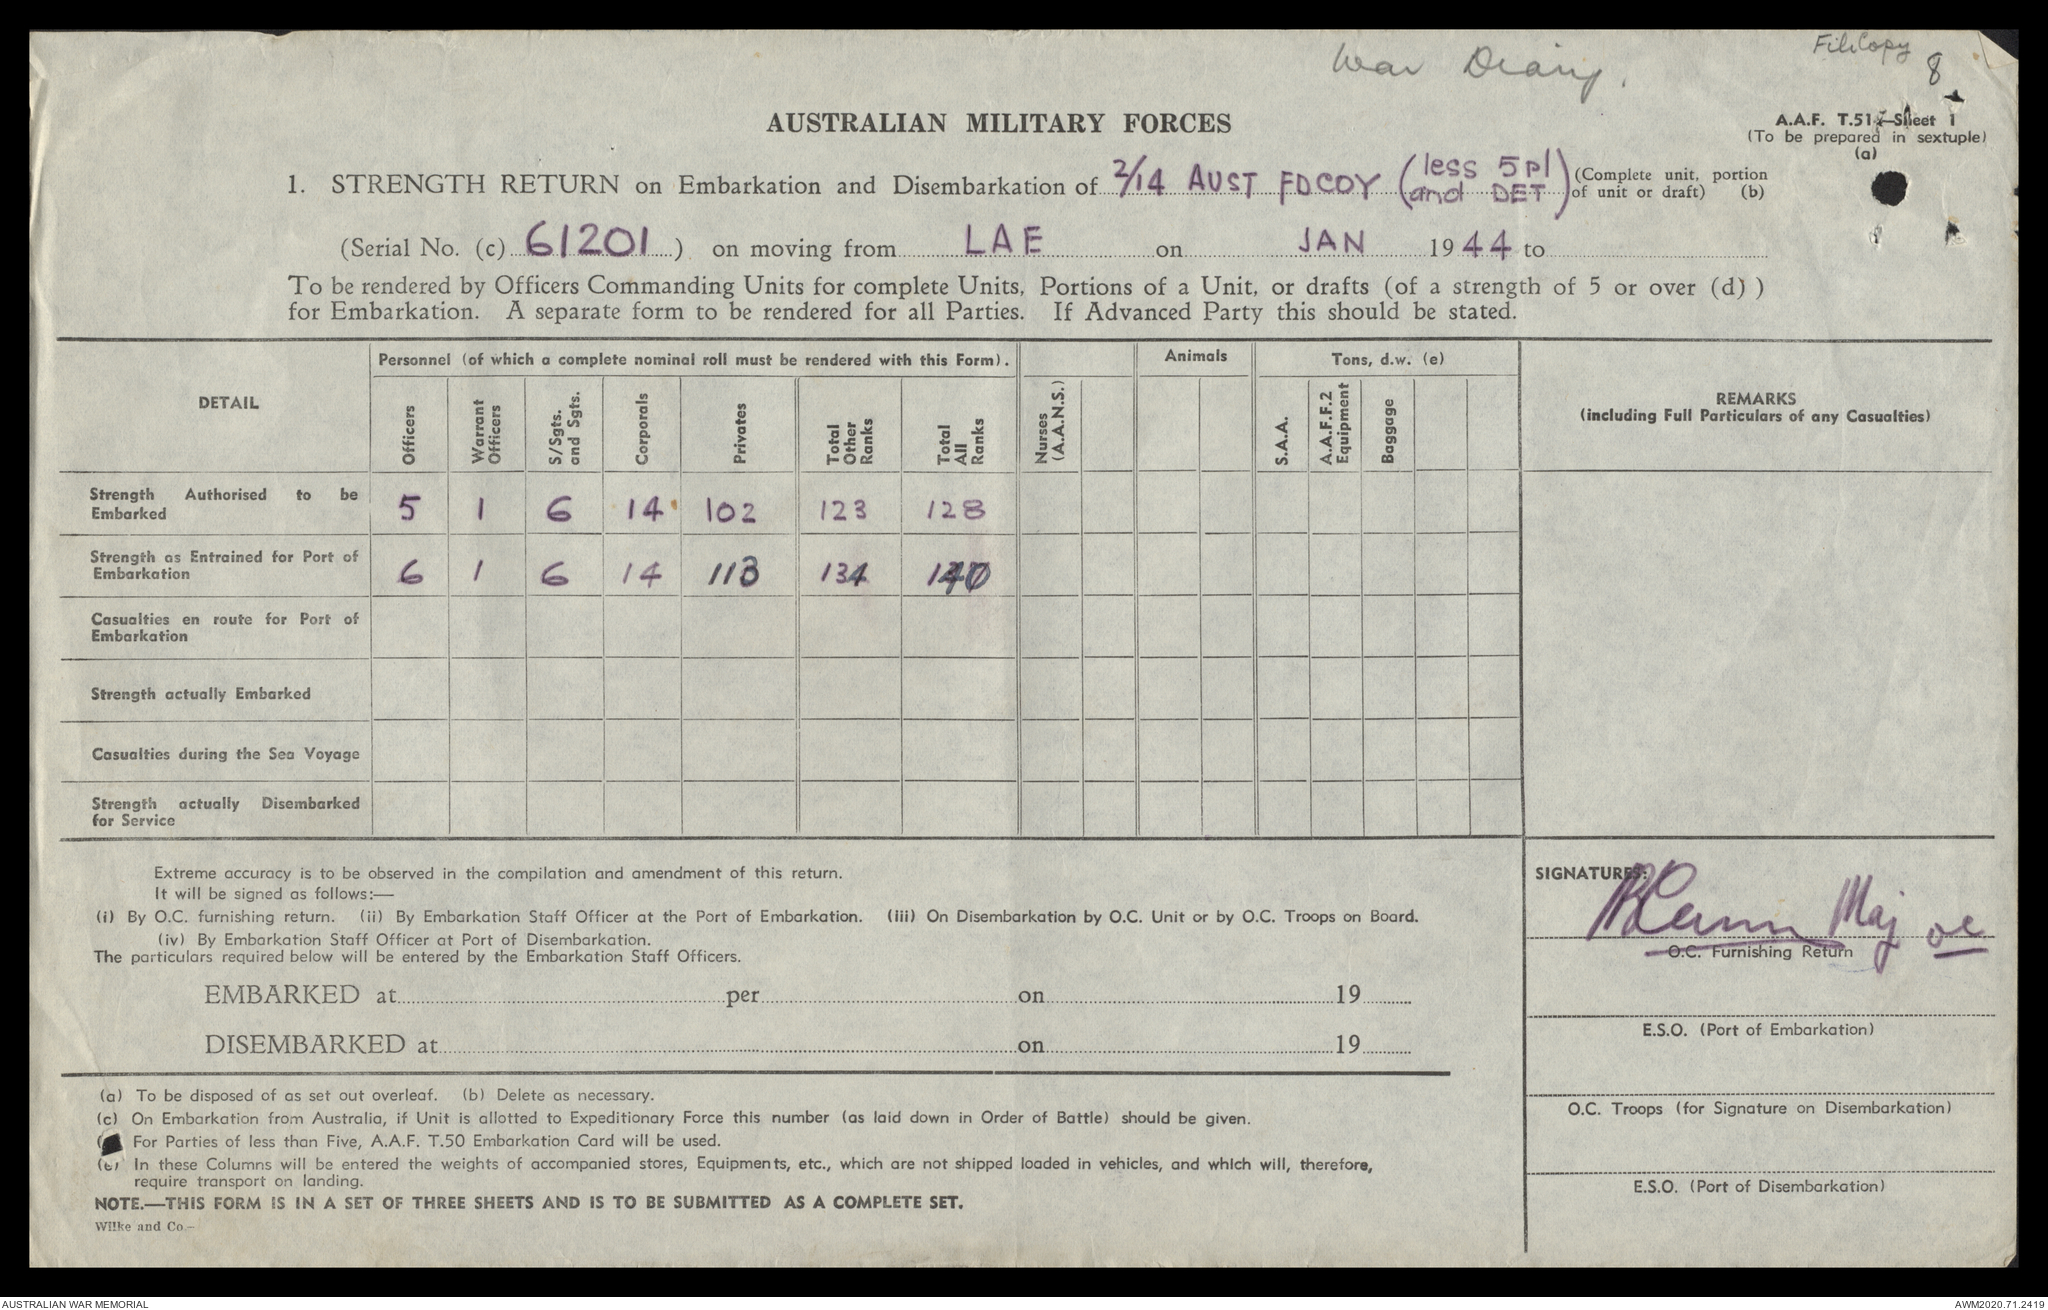 War Diary.
File Copy
8
AUSTRALIAN MILITARY FORCES
A.A.F. T.51—Sheet 1
(To be prepared in sextuple)
(a)
1. STRENGTH RETURN on Embarkation and Disembarkation of 2/14 AUST FDCOY (less 5 pl and DET) (Complete unit, portion of unit or draft) (b)
(Serial No. (c) 61201 ) on moving from LAE on JAN 1944 to
To be rendered by Officers Commanding Units for complete Units, Portions of a Unit, or drafts (of a strength of 5 or over (d) )
for Embarkation. A separate form to be rendered for all Parties. If Advanced Party this should be stated.
DETAIL
Personnel (of which a complete nominal roll must be rendered with this Form).
Animals
Tons, d.w. (e)
REMARKS
(including Full Particulars of any Casualties)
Officers
Warrant Officers
S/Sgts. and Sgts.
Corporals
Privates
Total Other Ranks
Total All Ranks
Nurses (A.A.N.S.)
S.A.A.
A.A.F.F.2 Equipment
Baggage
Strength Authorised to be Embarked 5 1 6 14 102 123 128
Strength as Entrained for Port of Embarkation 6 1 6 14 113 134 140
Casualties en route for Port of Embarkation
Strength actually Embarked
Casualties during the Sea Voyage
Strength actually Disembarked for Service
Extreme accuracy is to be observed in the compilation and amendment of this return.
It will be signed as follows:—
(i) By O.C. furnishing return. (ii) By Embarkation Staff Officer at the Port of Embarkation. (iii) On Disembarkation by O.C. Unit or by O.C. Troops on Board.
(iv) By Embarkation Staff Officer at Port of Disembarkation.
The particulars required below will be entered by the Embarkation Staff Officers.
EMBARKED at per on 19
DISEMBARKED at on 19
SIGNATURES:
Maj oc
O.C. Furnishing Return
E.S.O. (Port of Embarkation)
O.C. Troops (for Signature on Disembarkation)
E.S.O. (Port of Disembarkation)
(a) To be disposed of as set out overleaf. (b) Delete as necessary.
(c) On Embarkation from Australia, if Unit is allotted to Expeditionary Force this number (as laid down in Order of Battle) should be given.
For Parties of less than Five, A.A.F. T.50 Embarkation Card will be used.
(e) In these Columns will be entered the weights of accompanied stores, Equipments, etc., which are not shipped loaded in vehicles, and which will, therefore,
require transport on landing.
NOTE.—THIS FORM IS IN A SET OF THREE SHEETS AND IS TO BE SUBMITTED AS A COMPLETE SET.
Wilke and Co—
AUSTRALIAN WAR MEMORIAL
AWM2020.71.2419